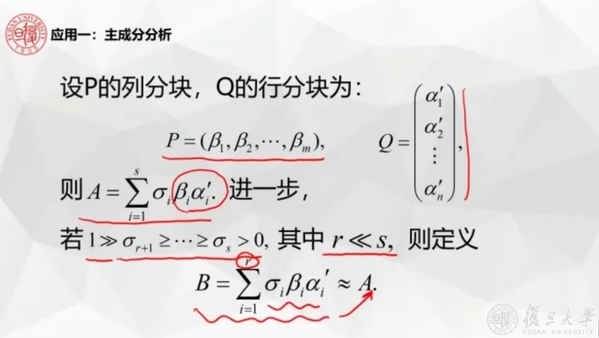 应用一：主成分分析
设P的列分块，Q的行分块为：
P = (β₁, β₂, ⋯, βₘ), Q = (α₁′ α₂′ ⋮ αₙ′),
则 A = ∑ᵢ₌₁ˢ σᵢβᵢαᵢ′. 进一步，
若 1 ≫ σᵣ₊₁ ≥ ⋯ ≥ σₛ > 0, 其中 r ≪ s, 则定义
B = ∑ᵢ₌₁ʳ σᵢβᵢαᵢ′ ≈ A.
復旦大学
FUDAN UNIVERSITY